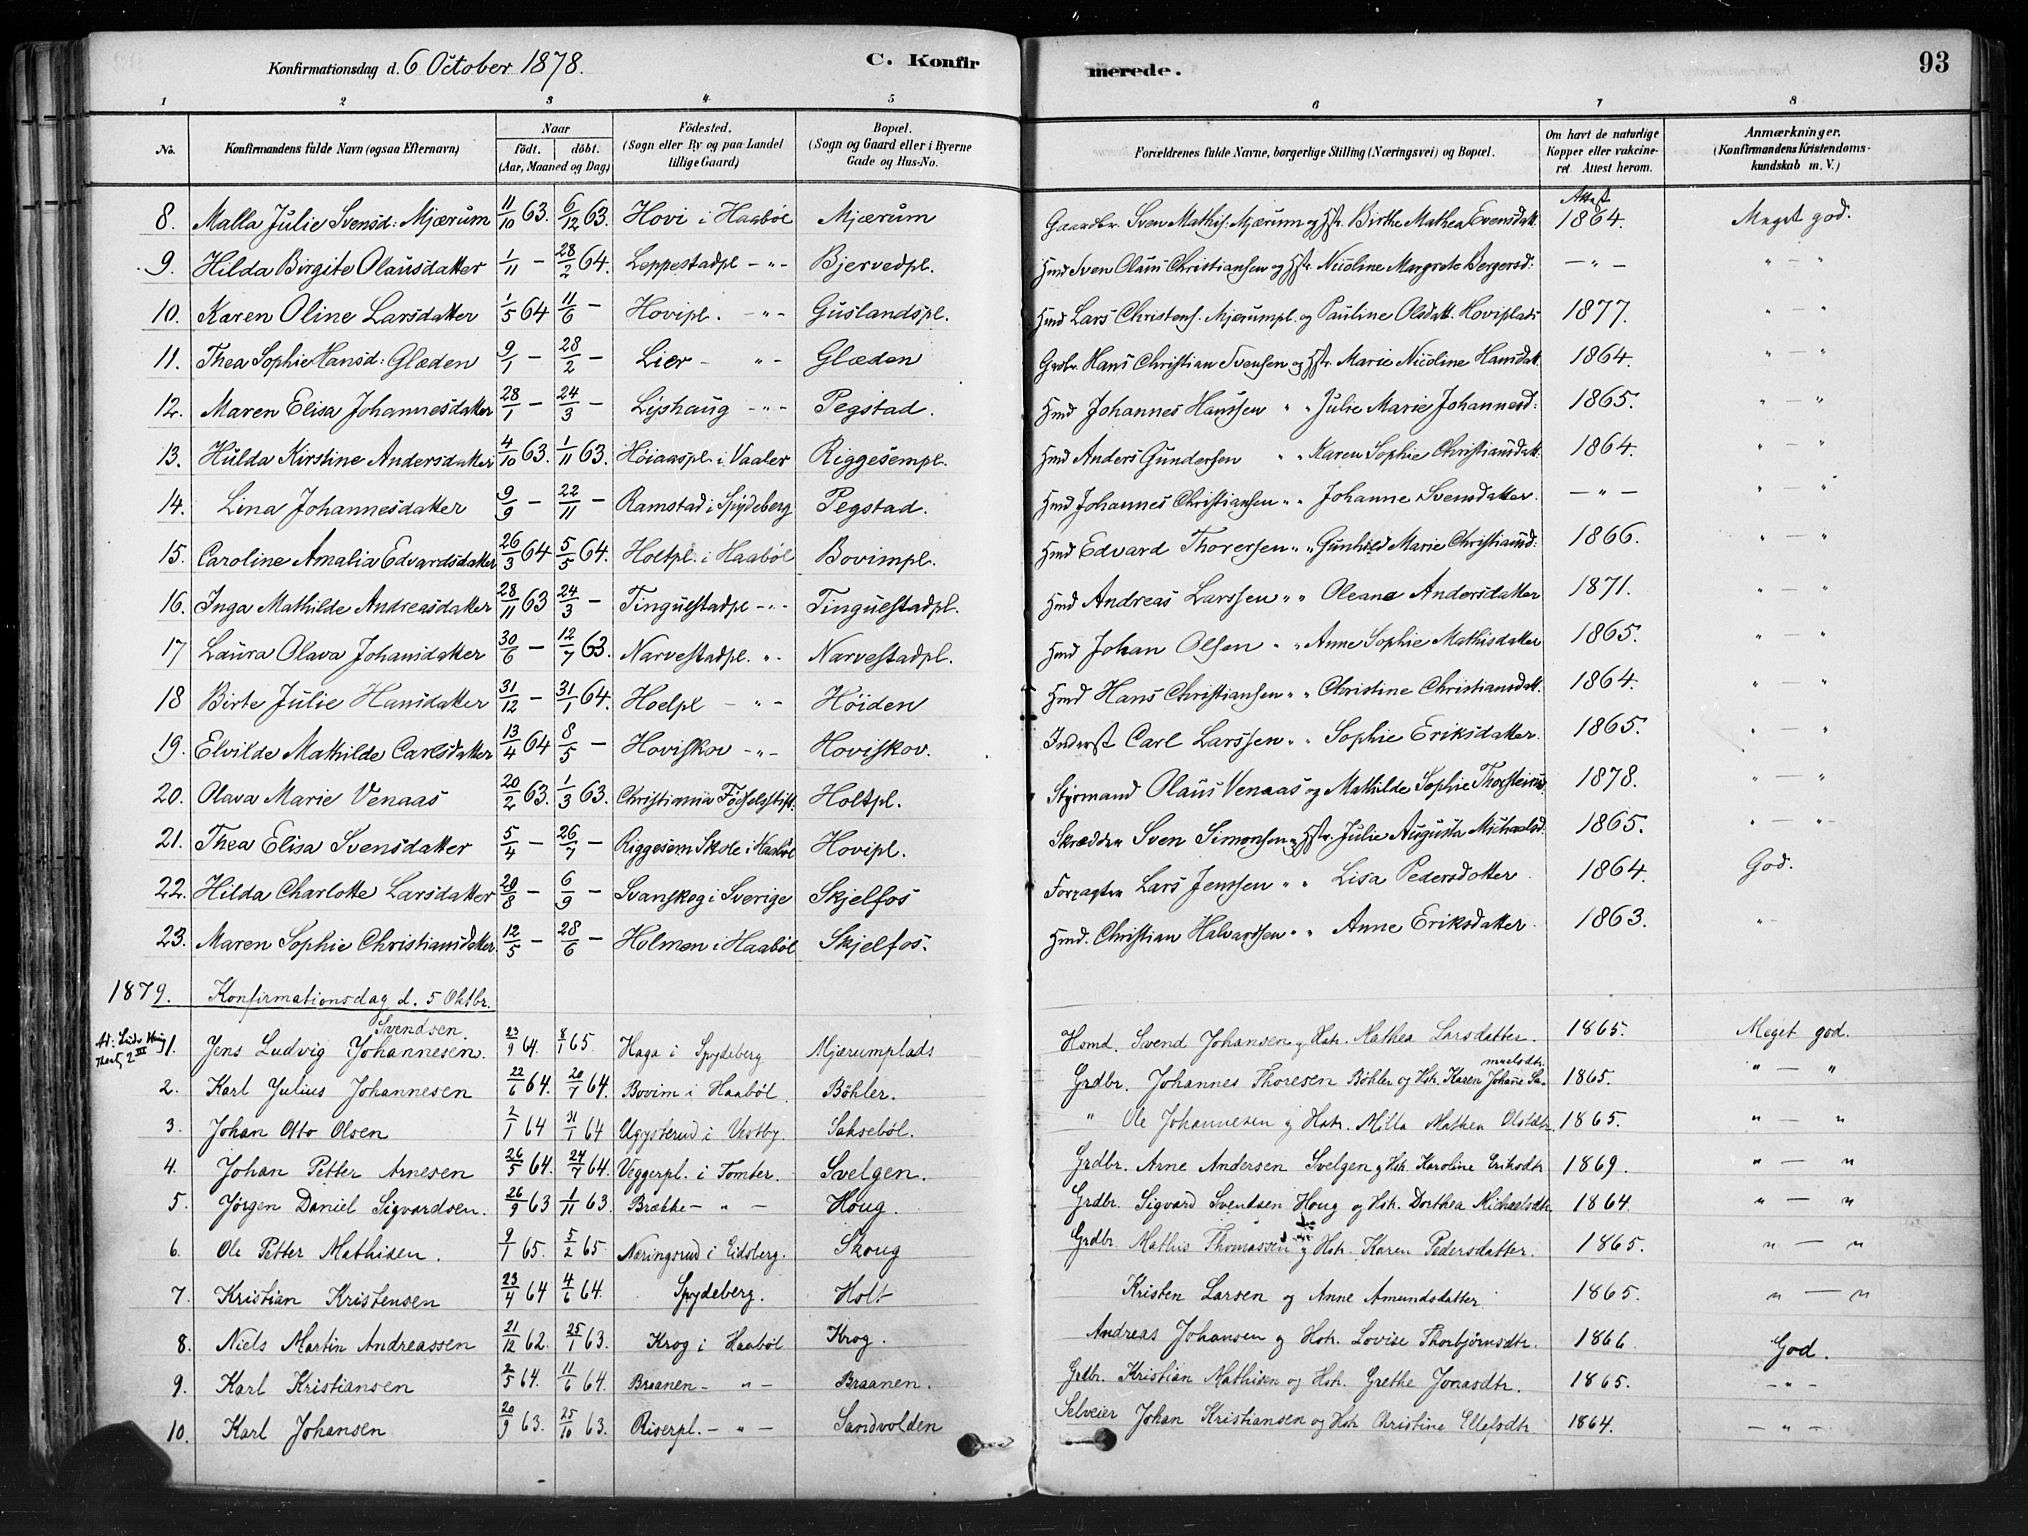 Konfirmationsdag d. 6 October 1878. C. Konfirmerede. 93
1 2 3 4 5 6 7 8
No. Konfirmandens fulde Navn (ogsaa Efternavn) Naar födt. döbt. (Aar, Maaned og Dag) Födested. (Sogn eller By og paa Landet tillige Gaard) Bopæl. (Sogn og Gaard eller i Byerne Gade og Hus-No. Forældrenes fulde Navne, borgerlige Stilling (Næringsvei) og Bopæl. Om havt de naturlige Kopper eller vakcineret Attest herom. Anmærkninger. (Konfirmandens Kristendomskundskab m. V.)
8. Malla Julie Svensd: Mjærum 11/10 63. 6/12 63. Hovi i Haabøl Mjærum Gaardbr. Sven Mathis. Mjærum og Hstr. Birthe Mathea Evensdatt. Attest 1864. Meget god.
9. Hilda Birgite Olausdatter 1/11 — 28/2 64. Leppestadpl - " - Bjervedpl. Hmd Sven Olaus Christiansen og Hstr. Nicoline Margrete Bergersd: — " — " — "
10. Karen Oline Larsdatter 1/5 64 11/6 — Hovipl. - " - Guslandspl. Hmd Lars Christens. Mjærumpl. og Pauline Olsdatt. Hoviplads 1877. " — "
11. Thea Sophie Hansd: Glæden 9/1 — 28/2 — Lier - " - Glæden Grdbr. Hans Christian Svensen og Hstr. Marie Nicoline Hansdatt. 1864. " — "
12. Maren Elisa Johannesdatter 28/1 — 24/3 — Lyshaug - " - Pegstad. Hmd Johannes Hanssen " " Julie Marie Johannesd: 1865. " — "
13. Hulda Kirstine Andersdatter 4/10 63. 1/11 63. Høiaaspl. i Vaaler Riggesempl. Hmd Anders Gundersen " " Karen Sophie Christiansdatt. 1864. " — "
14. Lina Johannesdatter 9/9 — 22/11 — Ramstad i Spydeberg Pegstad. Hmd Johannes Christiansen " " Johanne Svensdatter. — " — " — "
15. Caroline Amalia Edvardsdatter 26/3 64 5/5 64. Holtpl. i Haabøl Bovimpl. Hmd Edvard Thorersen " " Gunhild Marie Christiansd: 1866. " — "
16. Inga Mathilde Andreasdatter 28/11 63 24/3 — Tinguelstadpl - " - Tinguelstadpl. Hmd Andreas Larssen " " Oleane Andersdatter 1871. " — "
17 Laura Olava Johansdatter 30/6 — 12/7 63. Narvestadpl. " - Narvestadpl. Hmd Johan Olsen " " Anne Sophie Mathisdatter 1865. " — "
18 Birte Julie Hansdatter 31/12 — 31/1 64. Hoelpl - " - Høiden Hmd Hans Christiansen " " Christine Christiansdatt. 1864. " — "
19. Elvilde Mathilde Carlsdatter 13/4 64 8/5 — Hoviskov - " - Hoviskov. Inderst Carl Larssen " " Sophie Eriksdatter. 1865. " — "
20. Olava Marie Venaas 20/2 63. 1/3 63. Christiania Fødselsstift. Holtpl. Styrmand Olaus Venaas og Mathilde Sophie Thorsteinsd. 1878. " — "
21. Thea Elisa Svensdatter 5/4 — 26/7 — Riggesem Skole i Haabøl Hovipl. Skrædder Sven Simonsen og Hstr. Julie Augusta Michaelsd. 1865. " — "
22. Hilda Charlotte Larsdatter 20/8 — 6/9 — Svanskog i Sverige Skjelfos Forpagter Lars Jenssen " " Lisa Pedersdotter 1864. God.
23. Maren Sophie Christiansdatter 12/5 — 28/6 — Holmen i Haabøl Skjelfos. Hmd. Christian Halvarssen " " Anne Eriksdatter 1863. "
1879. Konfirmationsdag d. 5 Oktbr.
1. Jens Ludvig Svendsen Johannesen. 23/9 64. 8/1 65. Haga i Spydeberg Mjærumplads Hsmd. Svend Johansen og Hstr. Mathea Larsdatter. 1865. Meget god.
2. Karl Julius Johannesen 22/6 64. 20/7 64. Bovim i Haabøl. Böhler. Grdbr. Johannes Thoresen Böhler og Hstr. Karen Johane Samuelsdtr. 1865. " — "
3. Johan Otto Olsen 2/1 64 31/1 64 Ugysterud i Vestby. Saksebøl. " Ole Johannesen og Hstr. Milla Mathea Olsdtr. 1865. " — "
4. Johan Petter Arnesen 26/5 64. 24/7 64. Veggerpl. i Tomter. Svelgen. Grdbr. Arne Andersen Svelgen og Hstr. Karoline Eriksdtr 1869. " — "
5. Jørgen Daniel Sigvardsen. 26/9 63 1/11 63. Brække - " - Houg. Grdbr. Sigvard Svendsen Houg og Hstr. Dorthea Michaelsdtr 1864. " — "
6. Ole Petter Mathisen. 9/1 65. 5/2 65. Næringsrud i Eidsberg. Skoug Grdbr. Mathis Thomassen og Hstr. Karen Pedersdatter. 1865. " — "
7. Kristian Kristensen 23/4 64 4/6 64. Spydeberg. Holt Kristen Larsen og Anne Amundsdatter 1865. " — "
8. Niels Martin Andreassen 21/12 62. 25/1 63. Krog i Haabøl Krog. Andreas Johansen og Hstr. Lovise Thorbjörnsdtr. 1866 God.
9. Karl Kristiansen 2/5 64. 11/6 64. Braanen - " - Braanen. Grdbr. Kristian Mathisen og Hstr. Grethe Jonasdtr. 1865. — " —
10. Karl Johansen 20/9 63. 25/10 63. Riserpl. - " - Sandvolden Selveier Johan Kristiansen og Hstr. Christine Ellefsdtr 1864. — " —